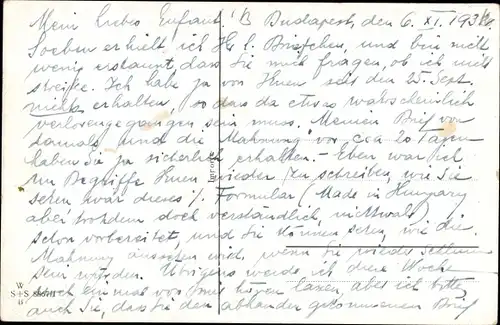 Mein liebes Enfant! B Budapest, den 6. XI. 193
Soeben erhielt ich Ihr l. Briefchen, und bin nicht
wenig erstaunt, dass Sie mich fragen, ob ich mit
streike. Ich habe ja von Ihnen seit den 25. Sept.
nichts erhalten, so dass da etwas wahrscheinlich
verlorengegangen sein muss. Meinen Brief von
damals und die "Mahnung" vor cca 20 Tagen
haben Sie ja sicherlich erhalten. - Eben war ich
im Begriffe Ihnen wieder zu schreiben, wie Sie
sehen war dieses Formular (Made in Hungary
aber trotzdem doch verständlich, nichtwahr
schon vorbereitet, und Sie können sehen, wie die
Mahnung aussehen wird, wenn Sie wieder
sein würden. Übrigens werde ich diese Woche
noch einmal von mir hören lassen, aber ich bitte
auch Sie, dass Sie den abhanden gekommenen Brief
W
S+S
B